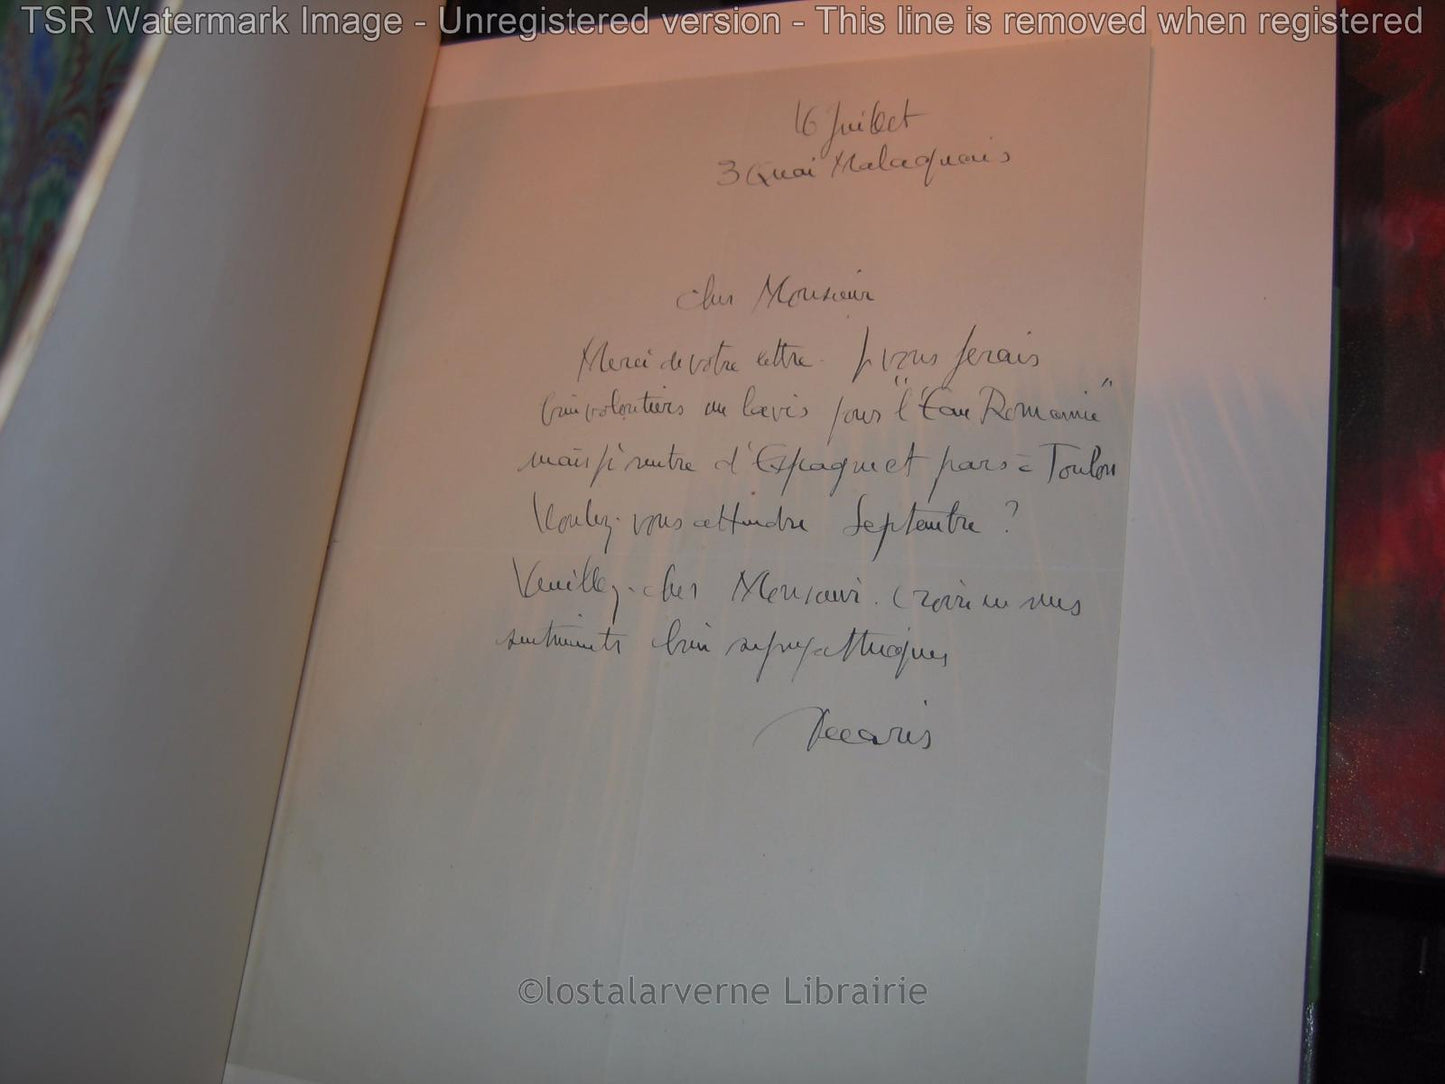 TSR Watermark Image - Unregistered version - This line is removed when registered
16 Juillet
3 Quai Malaquais
Cher Monsieur
Merci de votre lettre. Je vous ferais
bien volontiers un lavis pour "l'Eau Romaine"
mais je rentre d'Espagne et pars à Toulon
Voulez-vous attendre Septembre ?
Veuillez, cher Monsieur, croire en mes
sentiments bien sympathiques
Decaris
©lostalarverne Librairie